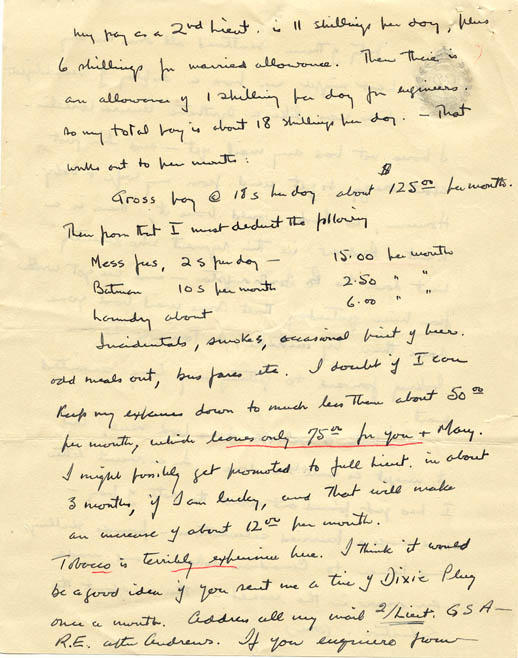 my pay as a 2nd Lieut. is 11 shillings per day, plus
6 shillings for married allowance. Then there is
an allowance of 1 shilling per day for engineers.
so my total pay is about 18 shillings per day. – That
works out to per month:
Gross pay @ 18s per day about $125.00 per month.
Then from that I must deduct the following
Mess fees, 2s per day — 15.00 per month
Batman 10s per month 2.50 " "
Laundry about 6.00 " "
Incidentals, smokes, occasional pint of beer.
odd meals out, bus fares etc. I doubt if I can
keep my expenses down to much less than about 50.00
per month, which leaves only 75.00 for you + Mary.
I might possibly get promoted to full Lieut. in about
3 months, if I am lucky, and that will make
an increase of about 12.00 per month.
Tobacco is terribly expensive here. I think it would
be a good idea if you sent me a tin of Dixie Plug
once a month. Address all my mail 2/Lieut. GSA—
R.E. after Andrews. If you engineers from